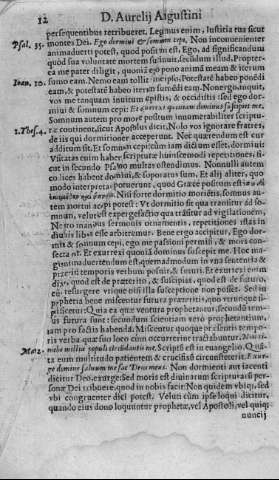 12 D. Aurelij Augustini
persequentibus retribueret. Legimus enim, Iustitia tua sicut
Psal. 35. montes Dei. Ego dormiui & somnum cepi. Non inconuenienter
animaduerti potest, quod positũ est, Ego, ad significandum
quòd sua voluntate mortem sustinuit, secundum illud, Propter-
ea me pater diligit, quoniã ego pono animã meam & iterum
Ioan. 10. sumo eam. Nemo eam tollit: Potestatẽ habeo ponẽdi
eam, & potestatẽ habeo iterum sumẽdi eam. Non ergo, inquit,
vos me tanquam inuitum cepistis, & occidistis: sed ego dor-
miui & somnum cepi: Et exurrexi quoniam dominus suscepit me.
Somnum autem pro morte positum innumerabiliter scriptu-
1. Thess. 4. ræ continent, sicut Apostolus dicit, Nolo vos ignorare fratres,
de iis qui dormierunt. Nec quærendum est cur
additum sit, Et somnum cepi: cum iam dictum esset, dormiui.
Visitatas enim habet scriptura huiusmodi repetitiones, si-
cut in secundo Psalmo multas ostendimus. Nonnulli autem
codices habent, dormiui, & soporatus sum. Et alij aliter, quo
modo interpretari potuerunt, quod Græcè positum est
Nisi forte dormitio morientis, somnus au-
tem mortui accipi potest: Vt dormitio sit qua transitur ad so-
mnum, velut est expergefactio qua transitur ad vigilationem.
Ne quo inanes sermonis ornamentis, repetitiones istas in
diuinis libris esse arbitremur. Bene ergo accipitur, Ego dormi-
ui & somnum cepi, ego me passioni permisi, & mors con-
secuta est. Et exurrexi quoniã dominus suscipiet me. Hoc ma-
præteriti temporis verbum posuit, & futuri. Et exurrexi enim
dixit, quod est de præterito, & suscipiet, quod est de futuro,
cùm resurgere vtique nisi illa susceptione non posset. Sed in
prophetia bene miscentur futura præteritis, quo vtrunque si-
gnificetur: Quia ea quæ ventura prophetantur secundũ tem-
pus futura sunt: secundum scientiam verò prophetantium,
iam pro factis habenda. Miscentur quoque præsentis tempo-
ris verba, quæ suo loco cùm occurrerint tractabuntur. Non ti-
mebo millia populi circundantis me. Scriptũ est in euangelio, Quã-
ta eum multitudo patientem & crucifixũ circunsteterit. Exur-
ge domine saluum me fac Deus meus. Non dormienti aut iacenti
dicitur Deo, exurge: Sed moris est diuinarum scripturarũ perso-
næ Dei tribuere, quod in nobis facit: Non quidem vbique, sed
vbi congruenter dici potest. Velut cùm ipse loqui dicitur,
quando eius dono loquuntur prophetæ, vel Apostoli, vel quique
nuncij